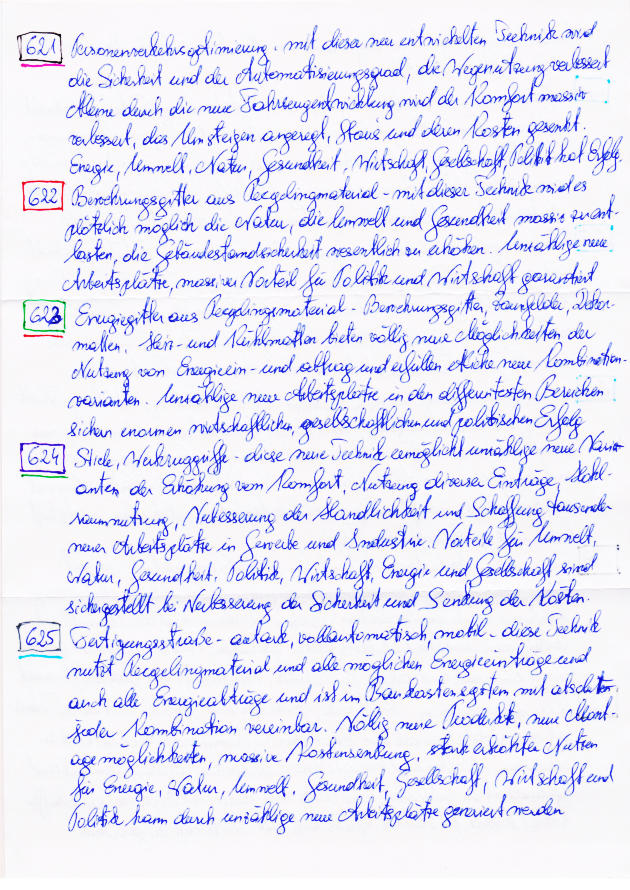 621 Personenverkehrsoptimierung. mit dieser neu entwickelten Technik wird
die Sicherheit und der Automatisierungsgrad, die Wegenützung verbessert
Alleine durch die neue Fahrzeugentwicklung wird der Komfort massiv
verbessert, das Umsteigen angeregt, Staus und deren Kosten gesenkt.
Energie, Umwelt, Natur, Gesundheit, Wirtschaft, Gesellschaft, Politik hat Erfolg.
622 Bewehrungsgitter aus Recyclingmaterial - mit dieser Technik wird es
plötzlich möglich die Natur, die Umwelt und Gesundheit massiv zu ent-
lasten, die Gebäudestandsicherheit wesentlich zu erhöhen. Unzählige neue
Arbeitsplätze, massiver Vorteil für Politik und Wirtschaft garantiert
623 Energiegitter aus Recyclingmaterial - Bewehrungsgitter, Zaunfelder,
matten, Heiz- und Kühlmatten bieten völlig neue Möglichkeiten der
Nutzung von Energieein- und abtrag und erfüllen etliche neue Kombination-
varianten. Unzählige neue Arbeitsplätze in den differentesten Bereichen
sichern enormen wirtschaftlichen, gesellschaftlichen und politischen Erfolg
624 Stiele, Werkzeuggriffe - diese neue Technik ermöglicht unzählige neue Vari-
anten der Erhöhung von Komfort, Nutzung diverser Einträge, Hohl-
raumnutzung, Verbesserung der Handlichkeit und Schaffung tausender
neuer Arbeitsplätze in Gewerbe und Industrie. Vorteile für Umwelt,
Natur, Gesundheit, Politik, Wirtschaft, Energie und Gesellschaft sind
sichergestellt bei Verbesserung der Sicherheit und Senkung der Kosten.
625 Fertigungsstraße - autark, vollautomatisch, mobil - diese Technik
nutzt Recyclingmaterial und alle möglichen Energieeinträge und
auch alle Energieabträge und ist im Baukastensystem mit absolut
jeder Kombination vereinbar. Völlig neue Produkte, neue Mont-
agemöglichkeiten, massive Kostensenkung, stark erhöhter Nutzen
für Energie, Natur, Umwelt, Gesundheit, Gesellschaft, Wirtschaft und
Politik kann durch unzählige neue Arbeitsplätze generiert werden